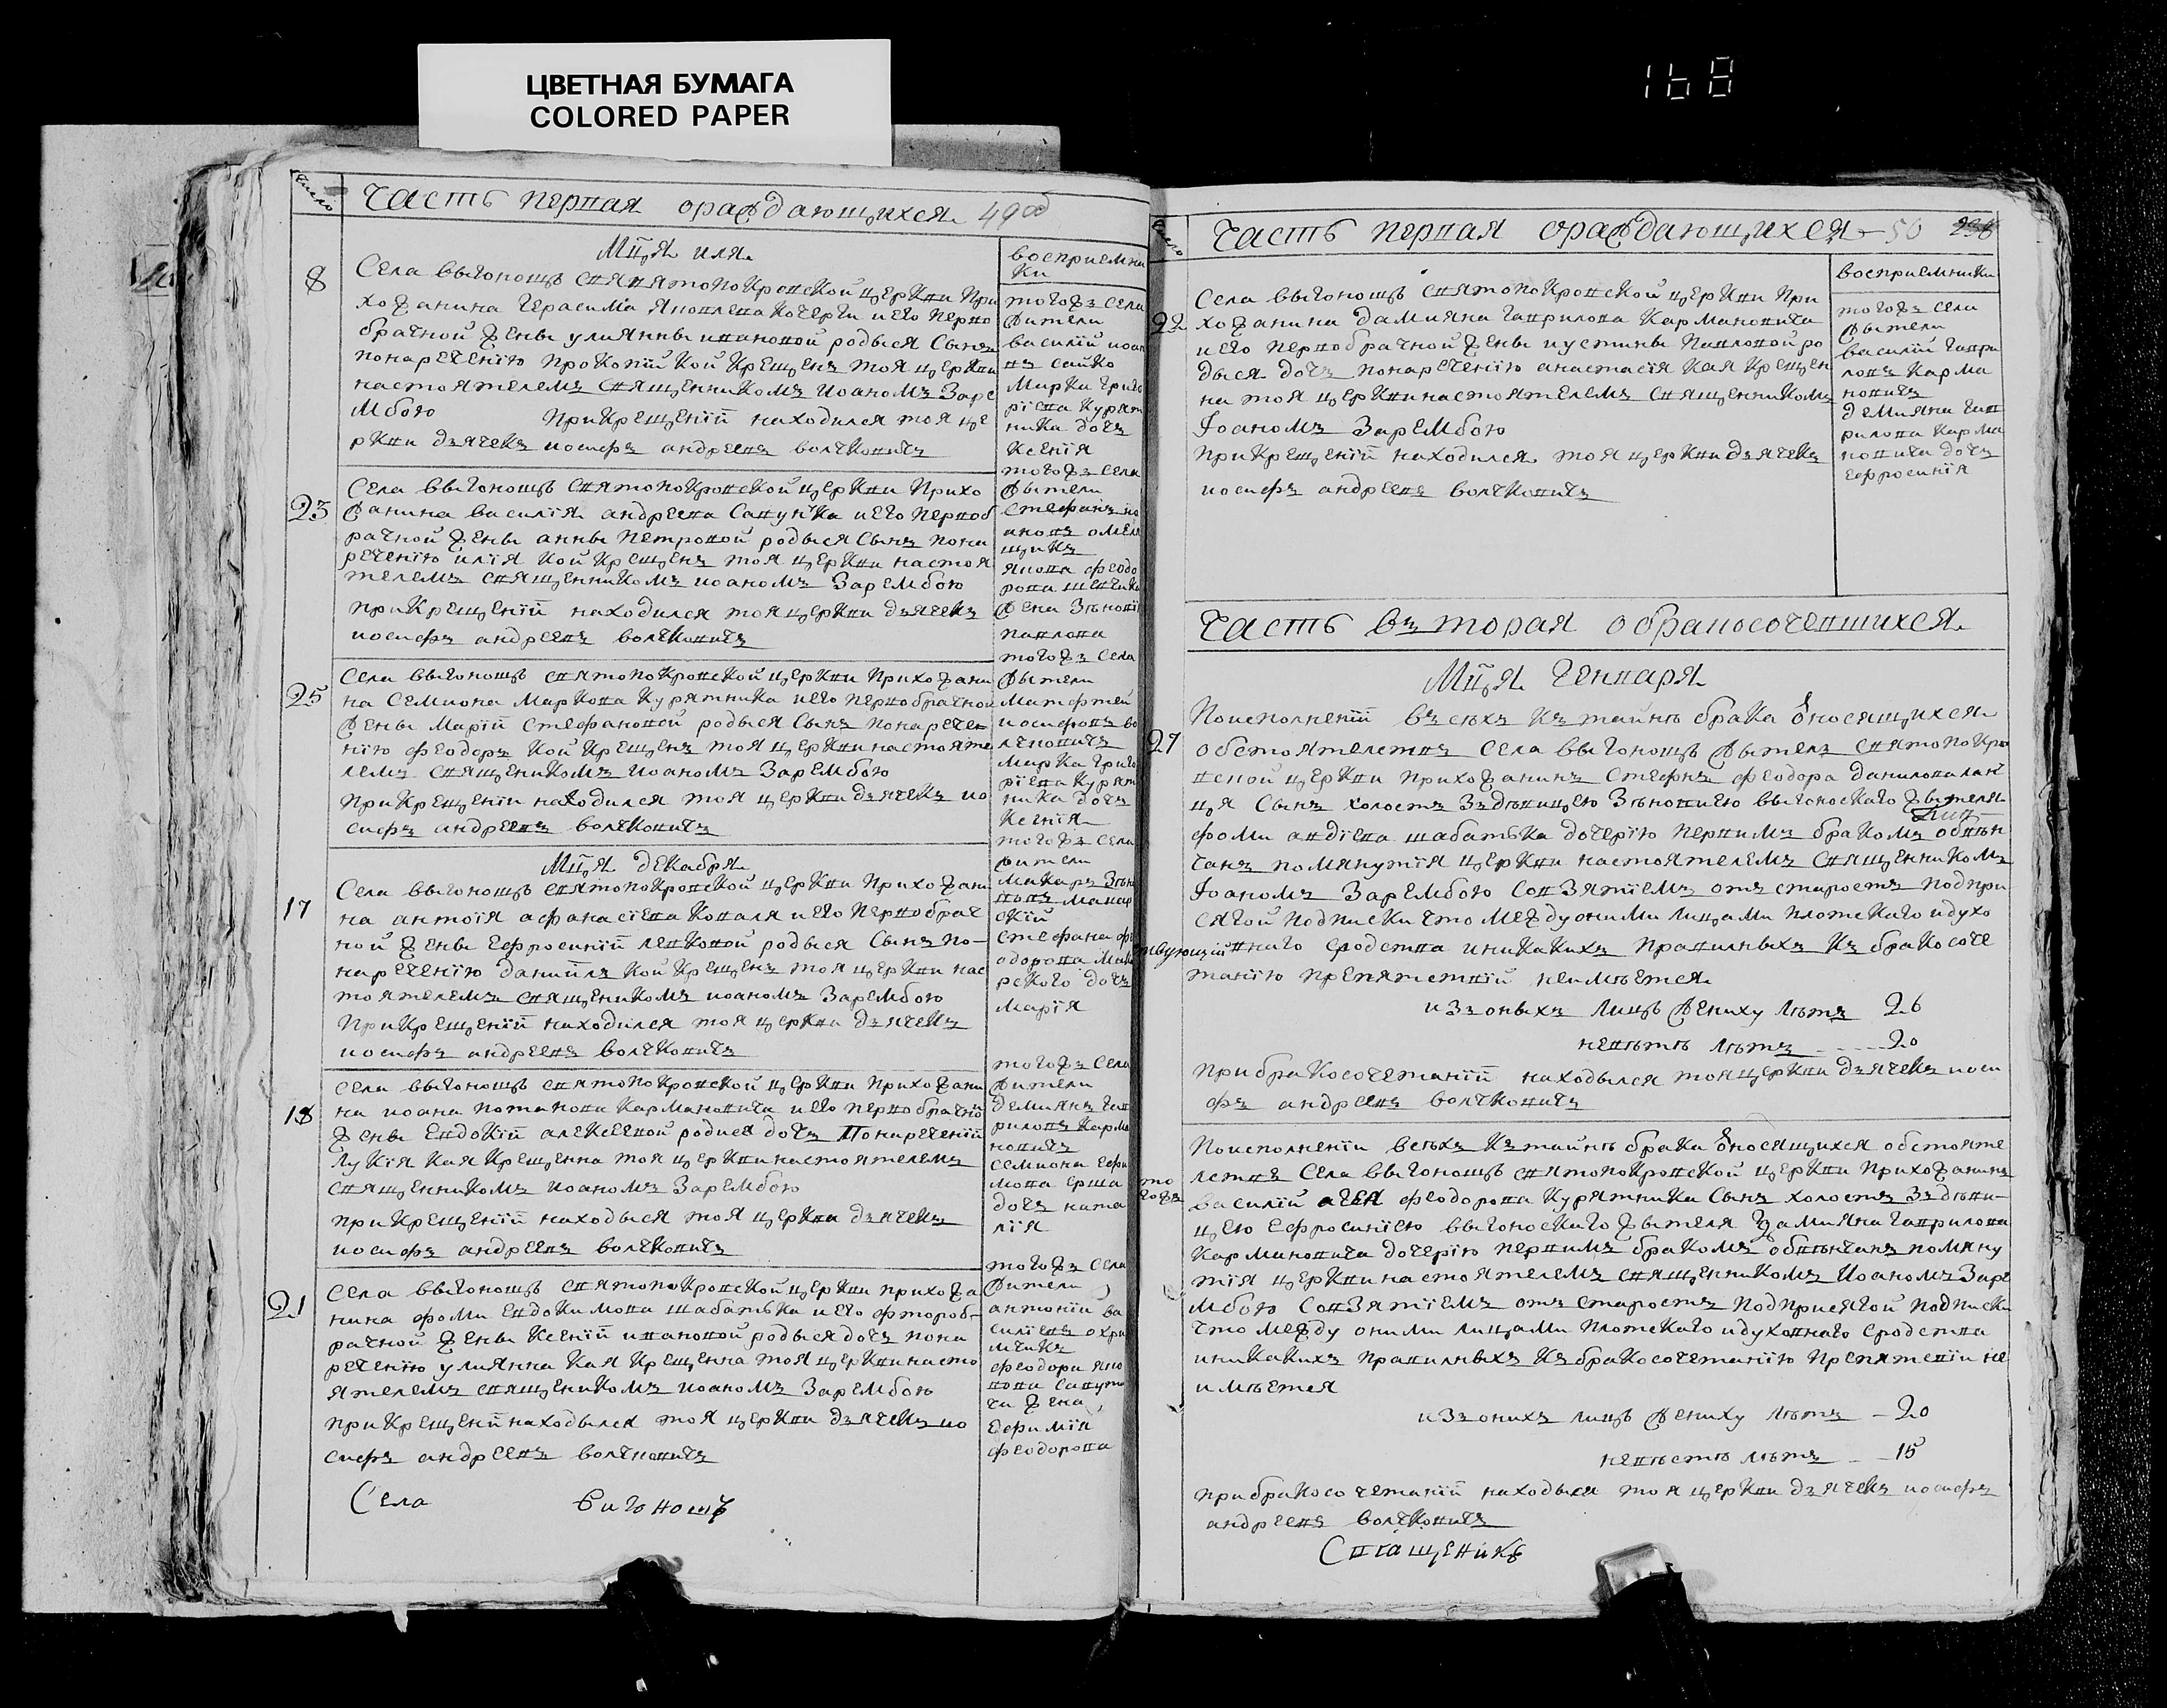 ЦВЕТНАЯ БУМАГА
COLORED PAPER
168
Число
Часть первая ораждающихся 49
Мця иля
восприемни
ки
8
Села выгонощъ святопокровской церкви при
хожанина герасима яковлева кочерги и его перво
брачной жены улиянны ивановой родыся сынъ
понаречению прокопий кой крещенъ тоя церкви
настоятелемъ священникомъ иоаномъ заре
мбою при крещений находился тоя це
ркви дьячекъ иосифъ андреевъ волчковичъ
тогожъ села
жители
василий иоан
въ сайко
марка григо
риева курят
ника дочъ
ксения
23
Села выгонощъ святопокровской церкви прихо
жанина василия андреева
и его первоб
рачной жены анны петровой родыся сынъ пона
речению илия кой крещенъ тоя церкви настоя
телемъ священникомъ иоаномъ зарембою
при крещений находился тоя церкви дьячекъ
иосифъ андреевъ волчковичъ
тогожъ села
жители
стефанъ ив
ановъ омел
щикъ
якова феодо
рова шевчика
жена зѣнови
павлова
25
Села выгонощъ святопокровской церкви прихожани
на семиона маркова курятника и его первобрачной
жены марий стефановой родыся сынъ понаречен
нию феодоръ кой крещенъ тоя церкви настояте
лемъ священикомъ иоаномъ зарембою
при крещении находился тоя церкви дьячекъ ио
сифъ андреевъ волчковичъ
тогожъ села
жители
матфтей
иосифовъ во
лчковичъ
марка григо
риева курят
ника дочъ
ксения
Мця декабря
17
Села выгонощъ святопокровской церкви прихожани
на антоия афанасиева коваля и его первобрач
ной жены ефросиний левковой родыся сынъ по-
наречению даниилъ кой крещенъ тоя церкви нас
тоятелемъ священикомъ иоаномъ зарембою
При крещений находился тоя церкви дьячекъ
иосифъ андреевъ волчковичъ
тогожъ села
жители
макаръ
стефана фе
одорова мака
рского дочъ
мария
18
села выгонощъ святопокровской церкви прихожани
на иоана потапова кармановича и его первобрачной
жены евдокий алексеевой родися дочъ Понаречений
лукия кая крещенна тоя церкви настоятелемъ
священникомъ иоаномъ зарембою
при крещений находыся тоя церкви дьячекъ
иосифъ андреевъ волчковичъ
тогожъ села
жители
демиянъ гав
риловъ карма
новичъ
семиона ефи
мова ерша
дочъ ната
лия
21
Села выгонощъ святопокровской церкви прихожа
нина фоми евдокимова шабатька и его фтороб-
рачной жены ксений ивановой родыся дочъ пона
речению улиянна кая крещенна тоя церкви насто
ятелемъ священикомъ иоаномъ зарембою
при крещений находылся тоя церкви дьячекъ ио
сифъ андреевъ волчковичъ
тогожъ села
жители
антоний ва
силиевъ охри
мчикъ
феодора яко
вова сапуно
ча жена
ефимия
феодорова
Села вигонощъ
Число
Часть первая ораждающихся 50 238
восприемники
22
Села выгонощъ святопокровской церкви при
хожанина дамияна гаврилова кармановича
и его первобрачной жены иустины павловой ро
дыся дочъ понаречению анастасия кая крещен
на тоя церкви настоятелемъ священникомъ
Иоаномъ зарембою
при крещений находился тоя церкви дьячекъ
иосифъ андреевъ волчковичъ
тогожъ села
жытели
василий гаври
ловъ карма
новичъ
демияна гав
рилова карма
новича дочъ
ефросиния
Часть въторая обракосочевшихся
Мця генваря
27
Поисполнений въсехъ къ тайнѣ брака относящихся
обстоятелствъ села выгонощъ жытелъ святопокро
вской церкви прихожанинъ стефнъ феодора данилова
ця сынъ холостъ зъдѣвицею зѣновиею выгоноского жытеля
фоми андиева шабатька дочерию первимъ бракомъ обвѣн
чанъ помянутия церкви настоятелемъ священникомъ
Иоаномъ зарембою совзятиемъ отъ старостъ подпри
сягой подписки что между оними лицами плотского идухо
вного сродства иникакихъ правилныхъ къ бракосоче
танию препятствий неимѣется
изъ оныхъ лицъ жениху лѣтъ 26
невѣстѣ лѣтъ 20
при бракосочетаний находылся тоя церкви дьячекъ иоси
фъ андреевъ волчковичъ
тогожъ
Поисполнении всѣхъ къ тайнѣ брака относящихся обстояте
лствъ села выгонощъ святопокровской церкви прихожанинъ
василий феодорова курятника сынъ холостъ зъдѣви-
цею ефросиниею выгоноского жытеля дамияна гаврилова
кармановича дочерию первимъ бракомъ обвѣнчанъ помяну
тия церкви настоятелемъ священникомъ иоаномъ заре
мбою совзятиемъ отъ старостъ подприсягой подписки
что между оними лицами плотского идуховного сродства
иникакихъ правилныхъ къ бракосочетанию препятсвии не
имѣется
изъ онихъ лицъ жениху лѣтъ - 20
невѣстѣ лѣтъ 15
при бракосочетаний находыся тоя церкви дьячекъ иосифъ
андреевъ волчковичъ
Священикъ